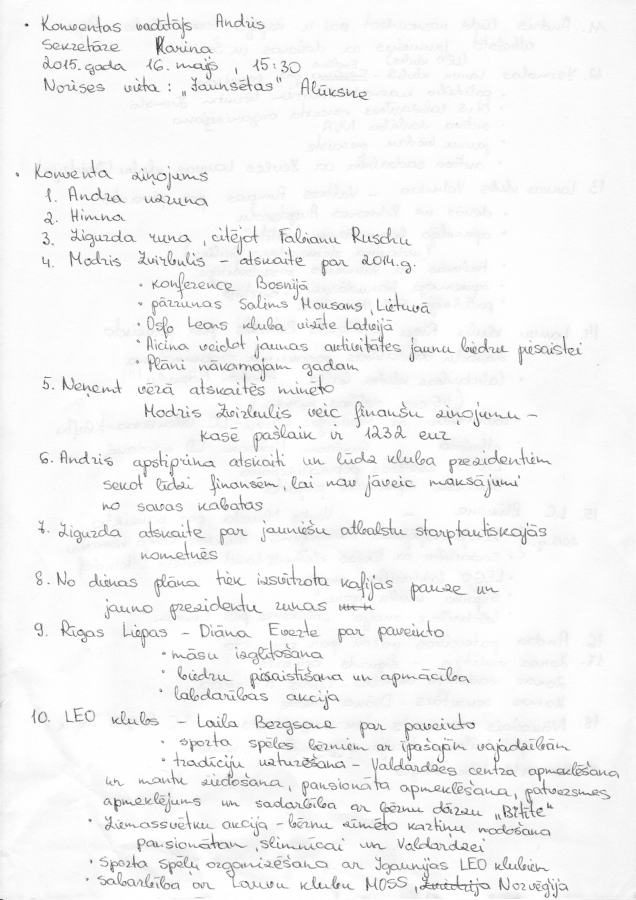 • Konventas vadītājs Andris
Sekretāre Karina
2015. gada 16. maijs, 15:30
Norises vieta: "Jaunsētas" Alūksne
• Konventa ziņojums
1. Andra uzruna
2. Himna
3. Zigurda runa, citējot Fabianu Ruschu
4. Modris Zvirbulis – atskaite par 2014.g.
• konference Bosnijā
• pārrunas Salims Mousans, Lietuvā
• Oslo Leons kluba vizīte Latvijā
• Aicina veidot jaunas aktivitātes jaunu biedru piesaistei
• Plāni nākamajam gadam
5. Neņemt vērā atskaitēs minēto
Modris Zvirbulis veic finanšu ziņojumu –
kasē pašlaik ir 1232 eur
6. Andris apstiprina atskaiti un lūdz kluba prezidentiem
sekot līdzi finansēm, lai nav jāveic maksājumi
no savas kabatas
7. Zigurda atskaite par jauniešu atbalstu starptautiskajās
nometnēs
8. No dienas plāna tiek izsvītrota kafijas pauze un
jauno prezidentu runas
9. Rīgas Liepas – Diāna Everte par paveikto
• māsu izglītošana
• biedru piesaistīšana un apmācība
• labdarības akcija
10. LEO klubs – Laila Bergsone par paveikto
• sporta spēles bērniem ar īpašajām vajadzībām
• tradīciju uzturēšana – Valdardzes centra apmeklēšana
un mantu ziedošana, pansionāta apmeklēšana, patversmes
apmeklējums un sadarbība ar bērnu dārzu "Bitīte"
• Ziemassvētku akcija – bērnu zīmēto kartiņu nodošana
pansionātam, slimnīcai un Valdardzei
• sporta spēļu organizēšana ar Igaunijas LEO klubiem
• sabarbība ar Lauvu klubu MOSS, Zviedrija Norvēģija